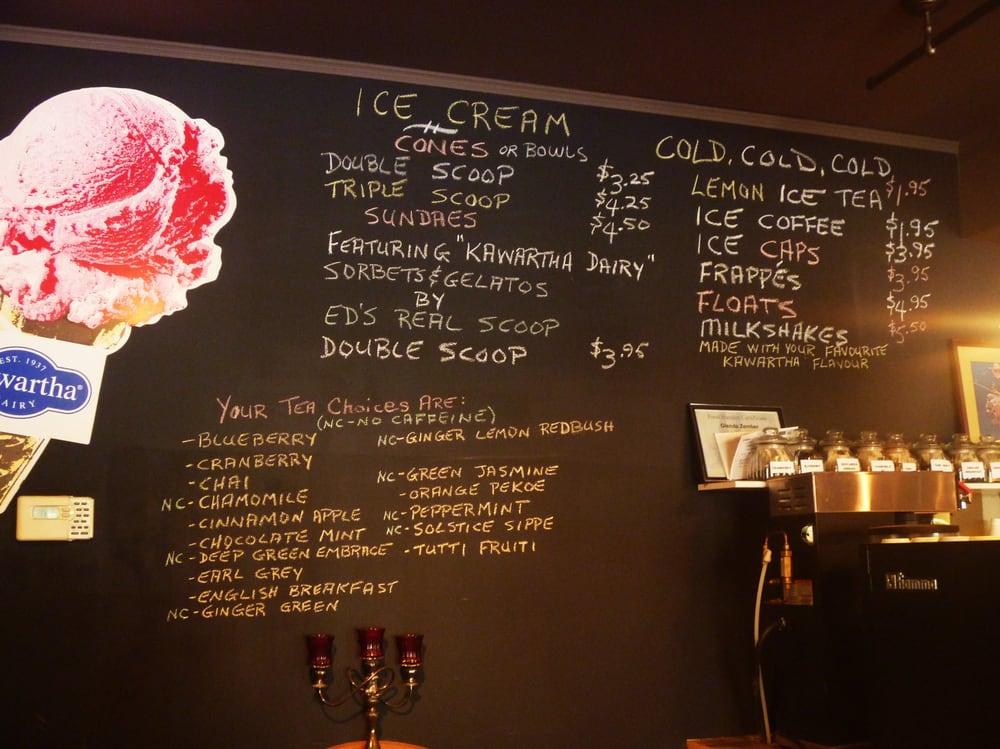 ICE CREAM
CONES OR BOWLS
DOUBLE SCOOP $3.25
TRIPLE SCOOP $4.25
SUNDAES $4.50
FEATURING "KAWARTHA DAIRY"
SORBETS & GELATOS
BY
ED'S REAL SCOOP
DOUBLE SCOOP $3.95
COLD, COLD, COLD
LEMON ICE TEA $1.95
ICE COFFEE $1.95
ICE CAPS $3.95
FRAPPÉS $3.95
FLOATS $4.95
MILKSHAKES $5.50
MADE WITH YOUR FAVOURITE
KAWARTHA FLAVOUR
EST. 1937
wartha®
DAIRY
YOUR TEA CHOICES ARE:
(NC-NO CAFFEINE)
-BLUEBERRY
-CRANBERRY
-CHAI
NC-CHAMOMILE
-CINNAMON APPLE
-CHOCOLATE MINT
NC-DEEP GREEN EMBRACE
-EARL GREY
-ENGLISH BREAKFAST
NC-GINGER GREEN
NC-GINGER LEMON REDBUSH
NC-GREEN JASMINE
-ORANGE PEKOE
NC-PEPPERMINT
NC-SOLSTICE SIPPE
-TUTTI FRUITI
Food Handler Certificate
Glenda Zember